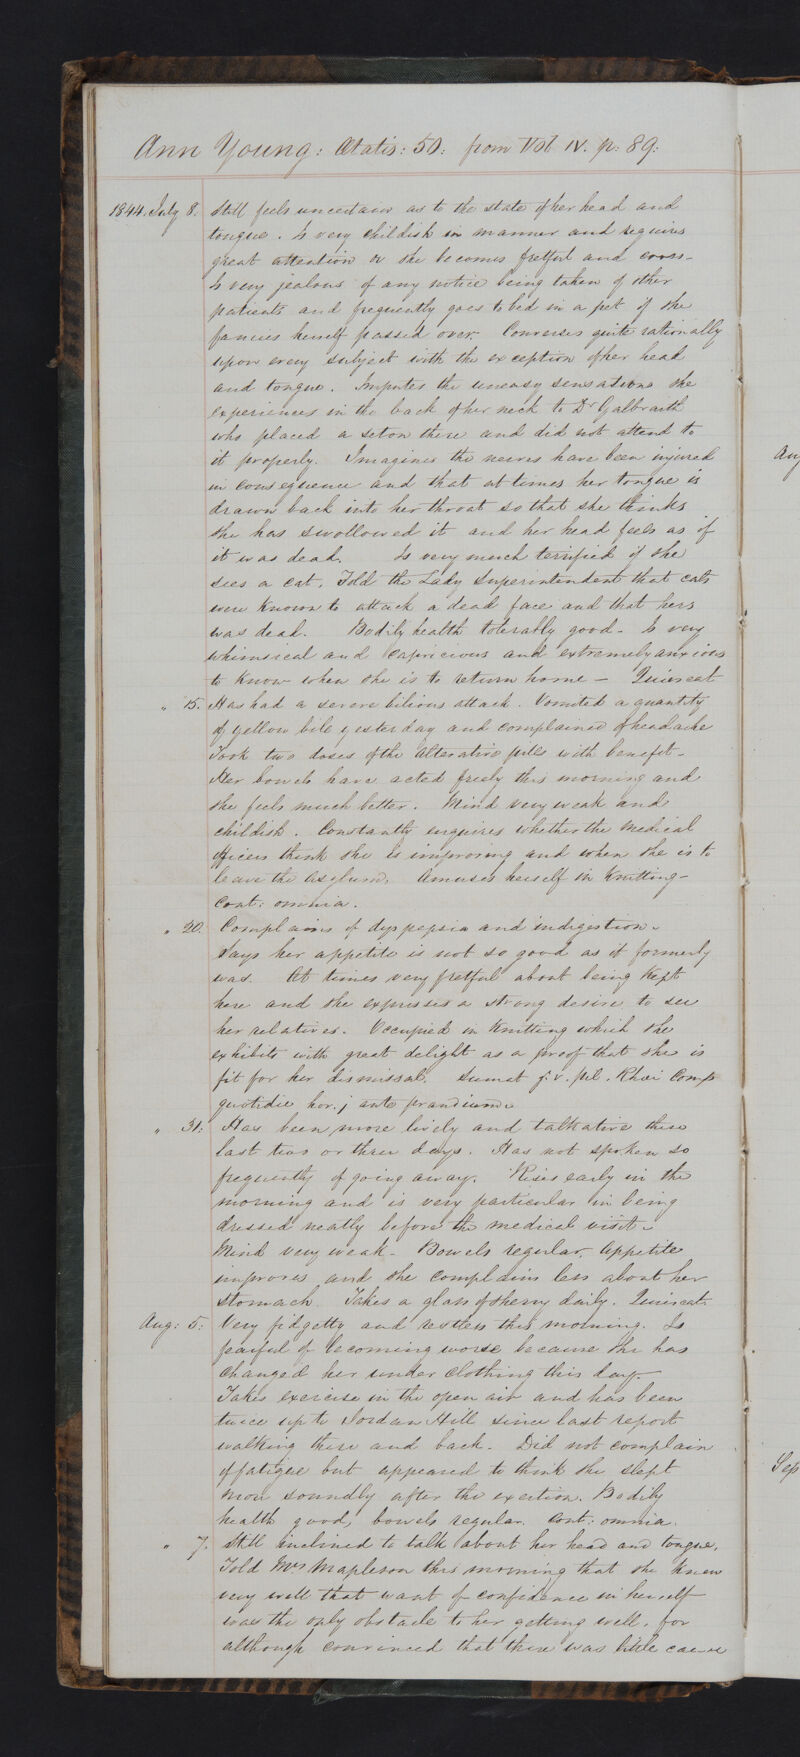 Ann Young: Ætatis: 50: from Vol IV. p: 89:
1844. July 8. Still feels uncertain as to the state of her head and
tongue. Is very childish in manner and requires
great attention or she becomes fretful and cross.
Is very jealous of any notice being taken of other
patients and frequently goes to bed in a pet if she
fancies herself passed over. Converses quite rationally
upon every subject with the exception of her head
and tongue. Imputes the uneasy sensations she
experiences in the back of her neck to Dr Galbraith
who placed a seton there and did not attend to
it properly. Imagines the nerves have been injured
in consequence and that at times her tongue is
drawn back into her throat so that she thinks
she has swollowed it and her head feels as if
it was dead. Is very much terrified if she
sees a cat. Told the Lady Superintendent that cats
were known to attack a dead face and that hers
was dead. Bodily health tolerably good - Is very
whimsical and capricious and extremely anxious
to know when she is to return home - Quiescat
" 15. Has had a severe bilious attack. Vomited a quantity
of yellow bile yesterday and complained of headache
Took two doses of the alterative pills with benefit -
Her bowels have acted freely this morning and
she feels much better. Mind very weak and
childish. Constantly enquires whether the medical
officers think she is improving and when she is to
leave the asylum. Amuses herself in knitting -
Cont: omnia.
" 20. Complains of dyspepsia and indigestion -
Says her appetite is not so good as it formerly
was. At times very fretful about being kept
here and she expresses a strong desire to see
her relatives. Occupied in knitting which she
exhibits with great delight as a proof that she is
fit for her dismissal. Sumat gr. v. pil. Rhei Comp
quotidie hor. j ante prandium
" 31: Has been more lively and talkative these
last two or three days. Has not spoken so
frequently of going away. Rises early in the
morning and is very particular in being
dressed neatly before the medical visit -
Mind very weak - Bowels regular, appetite
improves and she complains less about her
stomach. Takes a glass of sherry daily. Quiescat.
Aug: 5: Very fidgetty and restless this morning. Is
fearful of becoming worse because she has
changed her under clothing this day.
Takes exercise in the open air and has been
twice up to Jordan Hill since last report
walking there and back. Did not complain
of fatigue but appeared to think she slept
more soundly after the exertion. Bodily
health good, bowels regular. Cont: omnia.
" 7. Still inclined to talk about her head and tongue.
Told Mrs Mapleson this morning that she knew
very well that want of confidence in herself
was the only obstacle to her getting well, for
although convinced that there was little cause
Aug
Sep